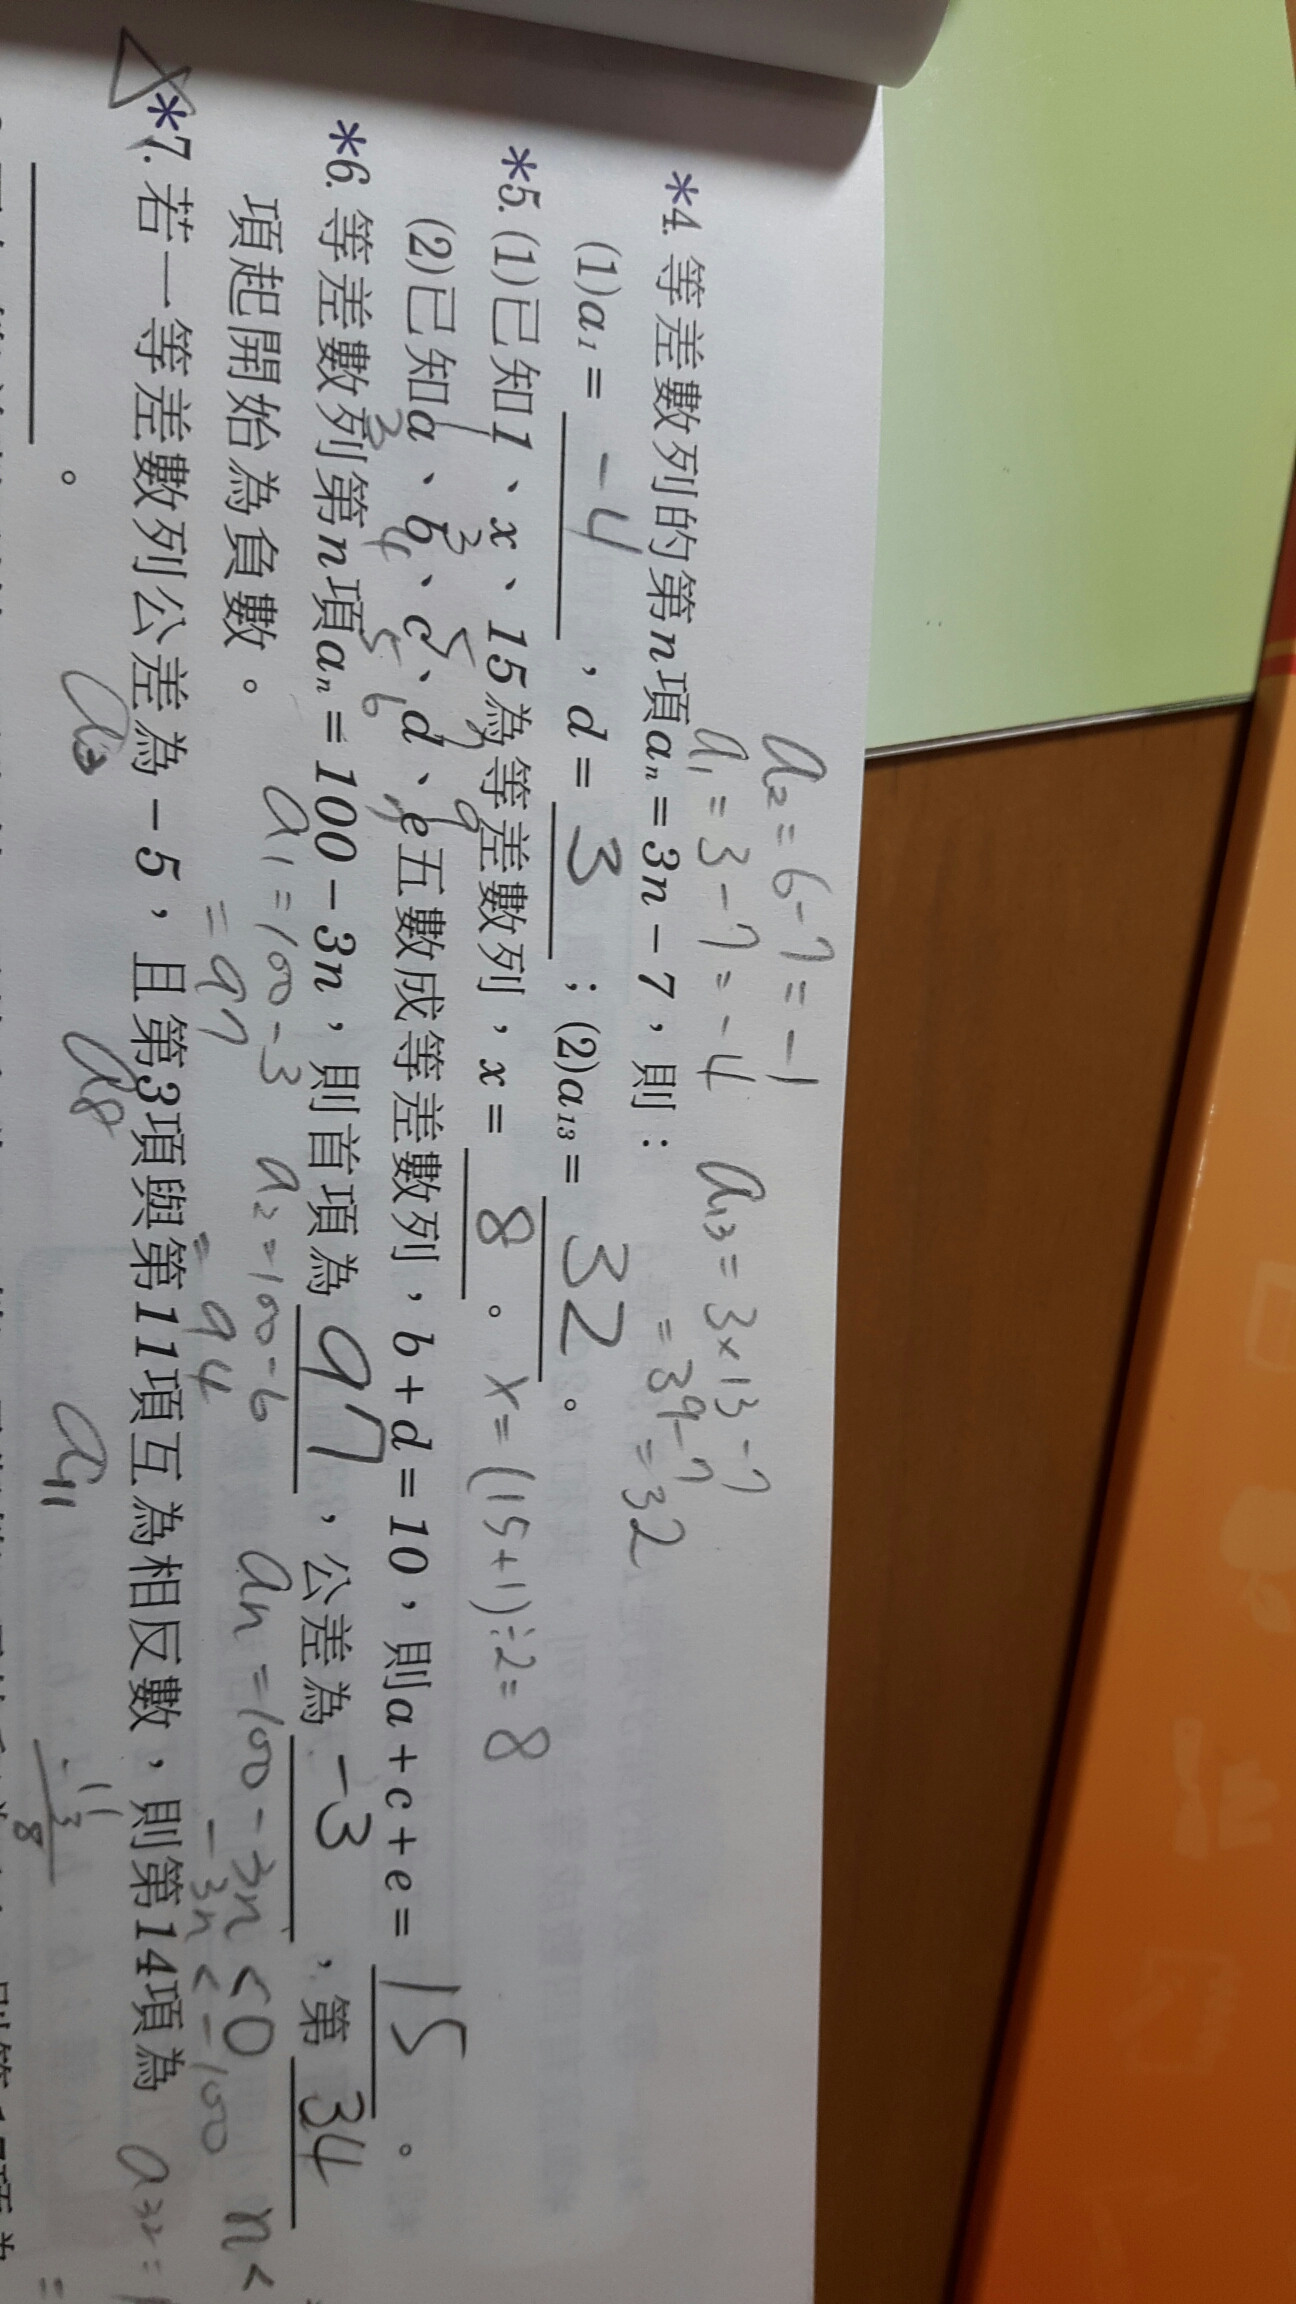 a₂=6-7=-1
a₁=3-7=-4 a₁₃=3×13-7
=39-7=32
*4. 等差數列的第n項aₙ=3n-7，則：
(1)a₁= -4 ，d= 3 ；(2)a₁₃= 32 。
*5. (1)已知1、x、15為等差數列，x= 8 。 x=(15+1)÷2=8
1 3 5 7 9
(2)已知a、b、c、d、e五數成等差數列，b+d=10，則a+c+e= 15 。
3 4 5 6 7
*6. 等差數列第n項aₙ=100-3n，則首項為 97 ，公差為 -3 ，第 34
項起開始為負數。 a₁=100-3 a₂=100-6 aₙ=100-3n<0 n<
=97 =94 -3n<-100
*7. 若一等差數列公差為-5，且第3項與第11項互為相反數，則第14項為
。 a₃ a₈ a₁₁ 11
-3
8